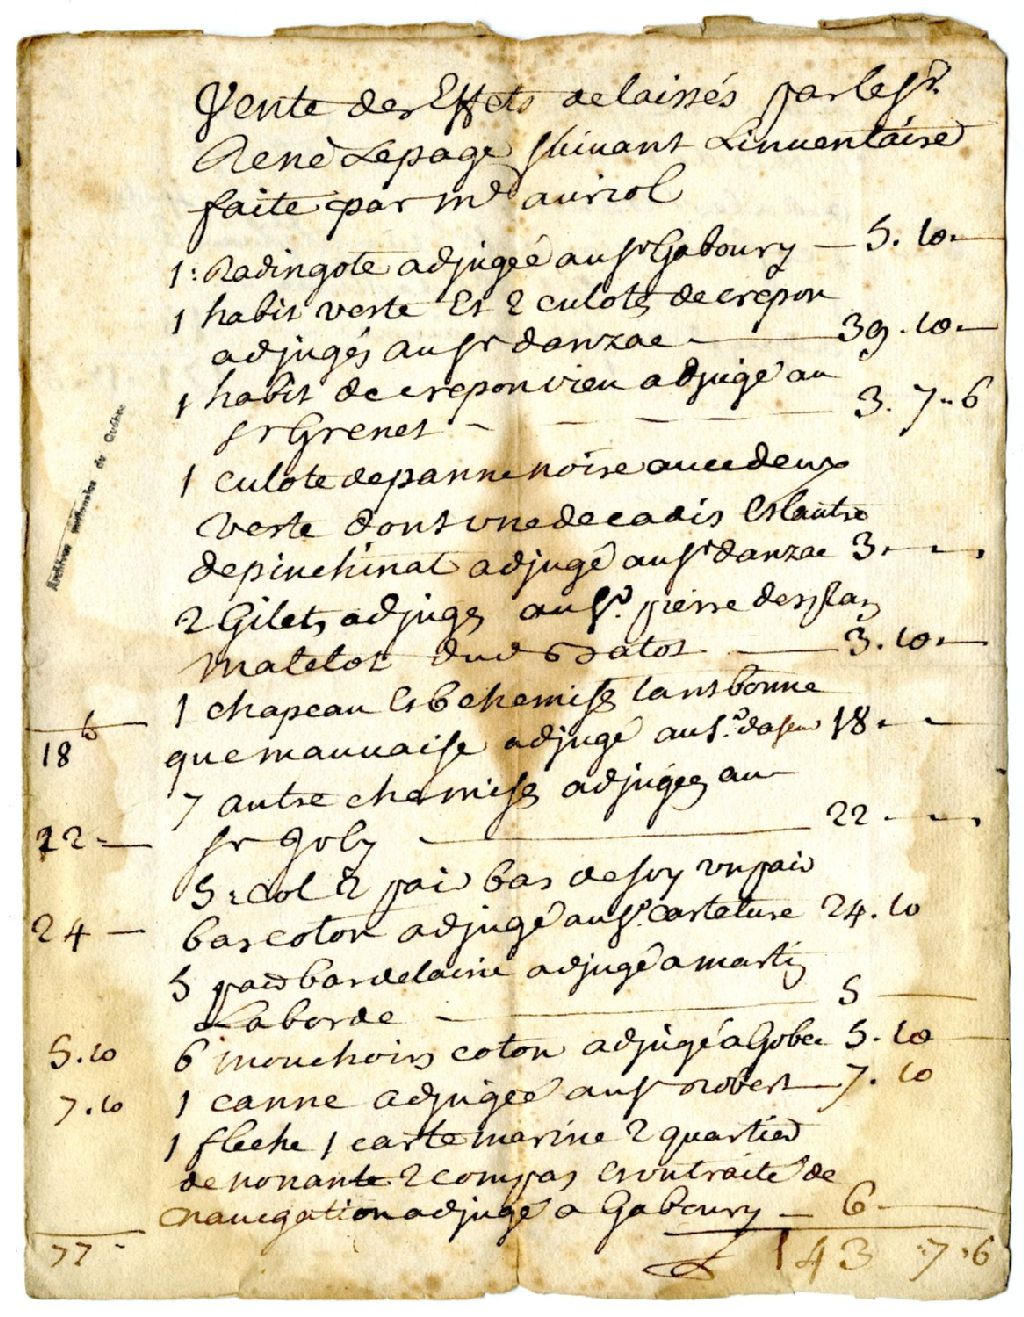 Vente des Effets delaissés par le Sr.
René Lepage Suivant Linventaire
faite par Mr auriol
1: Radingote adjugéé au Sr Gaboury — 5. 10. —
1 habit verte Et 2 culots de crepon
adjugés au Sr danzac — 39. 10. —
1 habit de crepon vieu adjugé au
Sr Grenet - - - 3. 7.. 6
1 culote de panne noire avec deux
verte dont une de cadis Et lautre
de pinchinat adjugé au Sr danzac 3. - -
2 Gilets adjugés au Sr. pierre
matelot dud — 3. 10. —
1 chapeau Et 6 chemises tant bonne
18 6
que mauvaise adjugé au Sr. 18. - -
7 autre chemises adjugées au
22 - Sr Joly — 22 - - -
5: col 2 pair bas de soy un pair
24 - bas coton adjugé au Sr. Castelure 24. 10
5 paid bas de laine adjugé a martin
Laborde — 5 —
5. 10 6 mouchoirs coton adjugé a Gober 5. 10
7. 10 1 canne adjugéé au Sr Robert — 7. 10
1 fleche 1 carte marine 2 quartied
de nonante 2 compas Et un traité de
navigation adjugé a Gaboury — 6 —
77 - 143 .7.6
Archives nationales du Québec